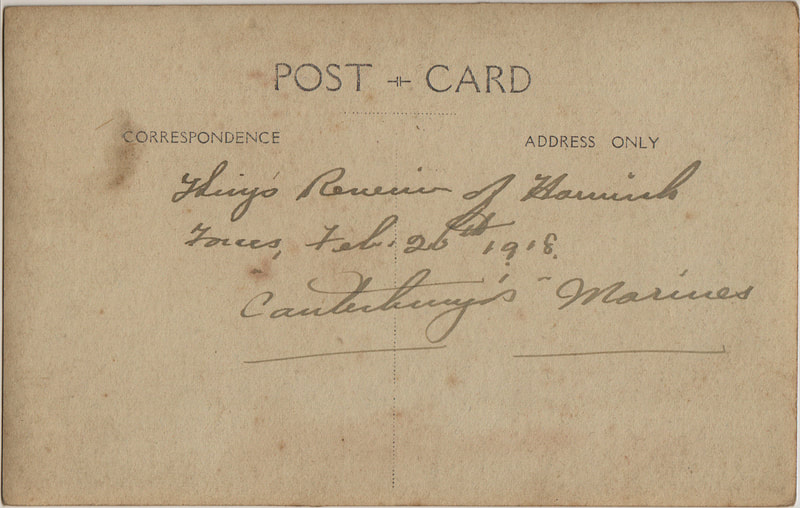 POST CARD
CORRESPONDENCE
ADDRESS ONLY
King's Review of Harwich
Forces, Feb. 26th 1918.
Canterbury's Marines